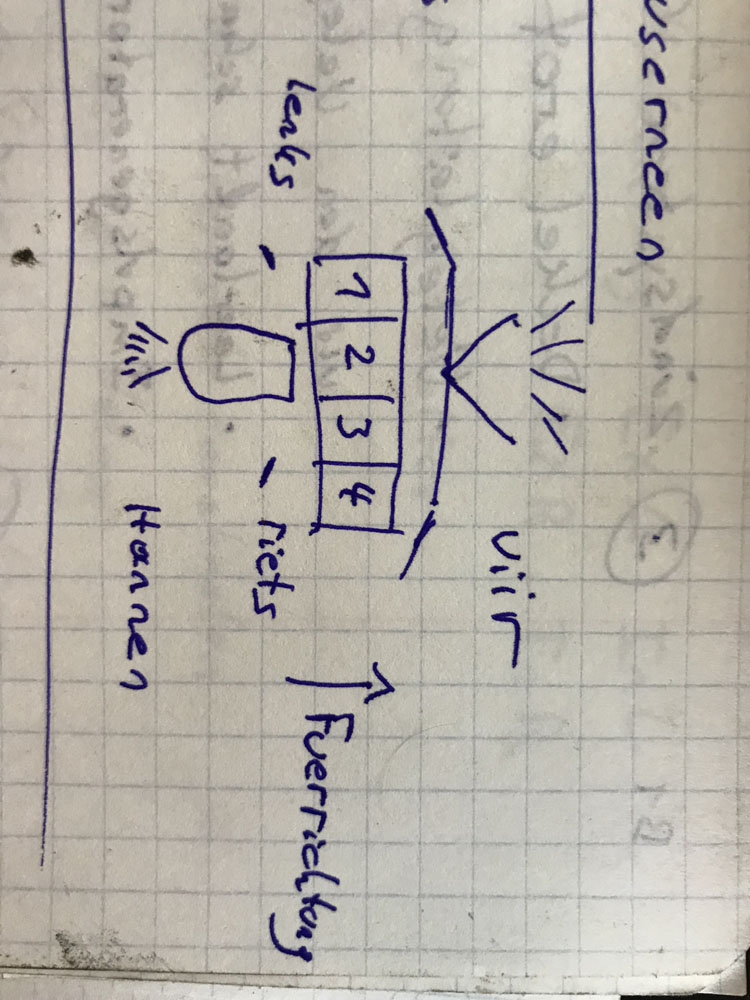 userneen
viir
1 2 3 4
lenks riets Fuerrichtong
Hannen